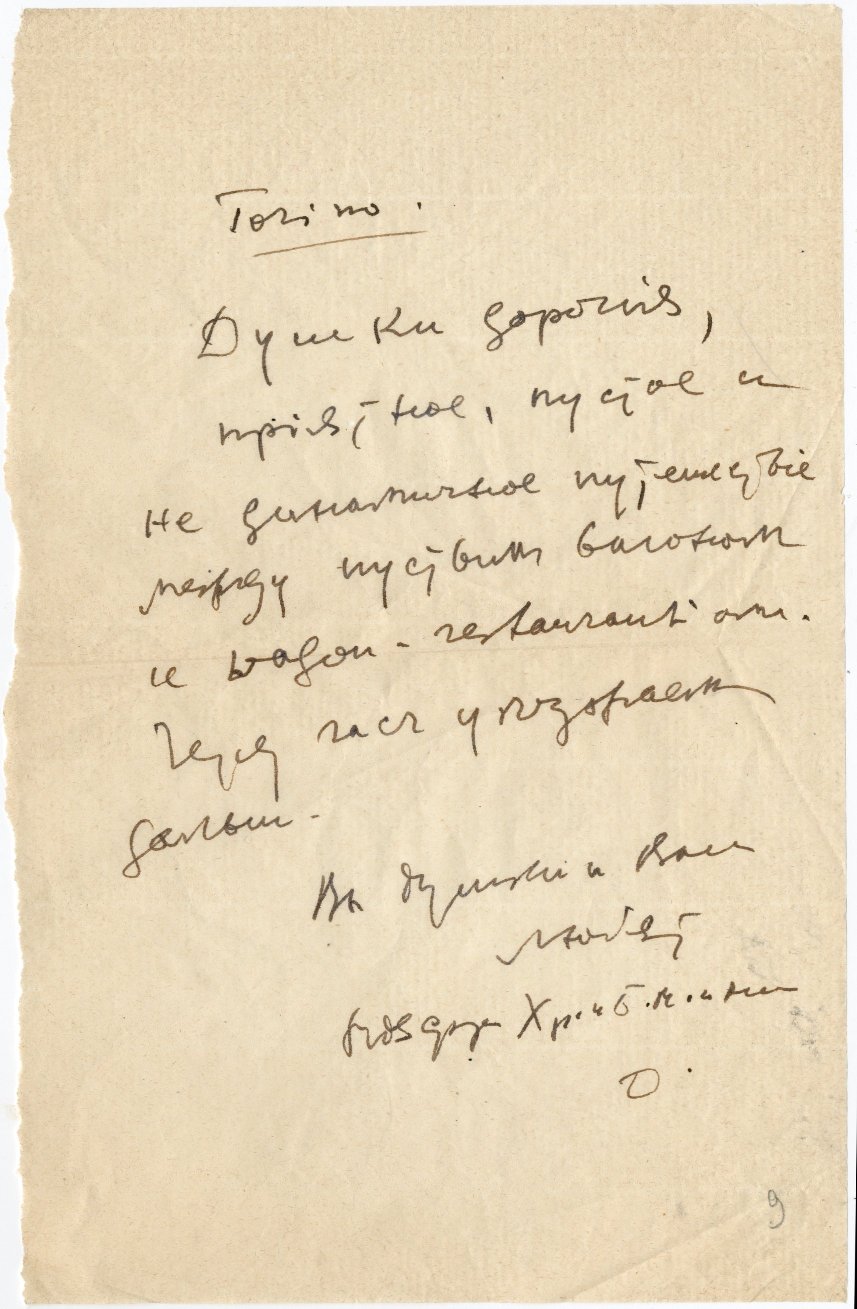 Torino.
Душки дорогія,
пріятное, пустое и
не динамичное путешествіе
между пустым вагоном
и wagon-restaurant'ом.
Через час уѣзжаем
дальш.
Вы душки и Вас
любят
Хр. и Б. М. и
О.
9